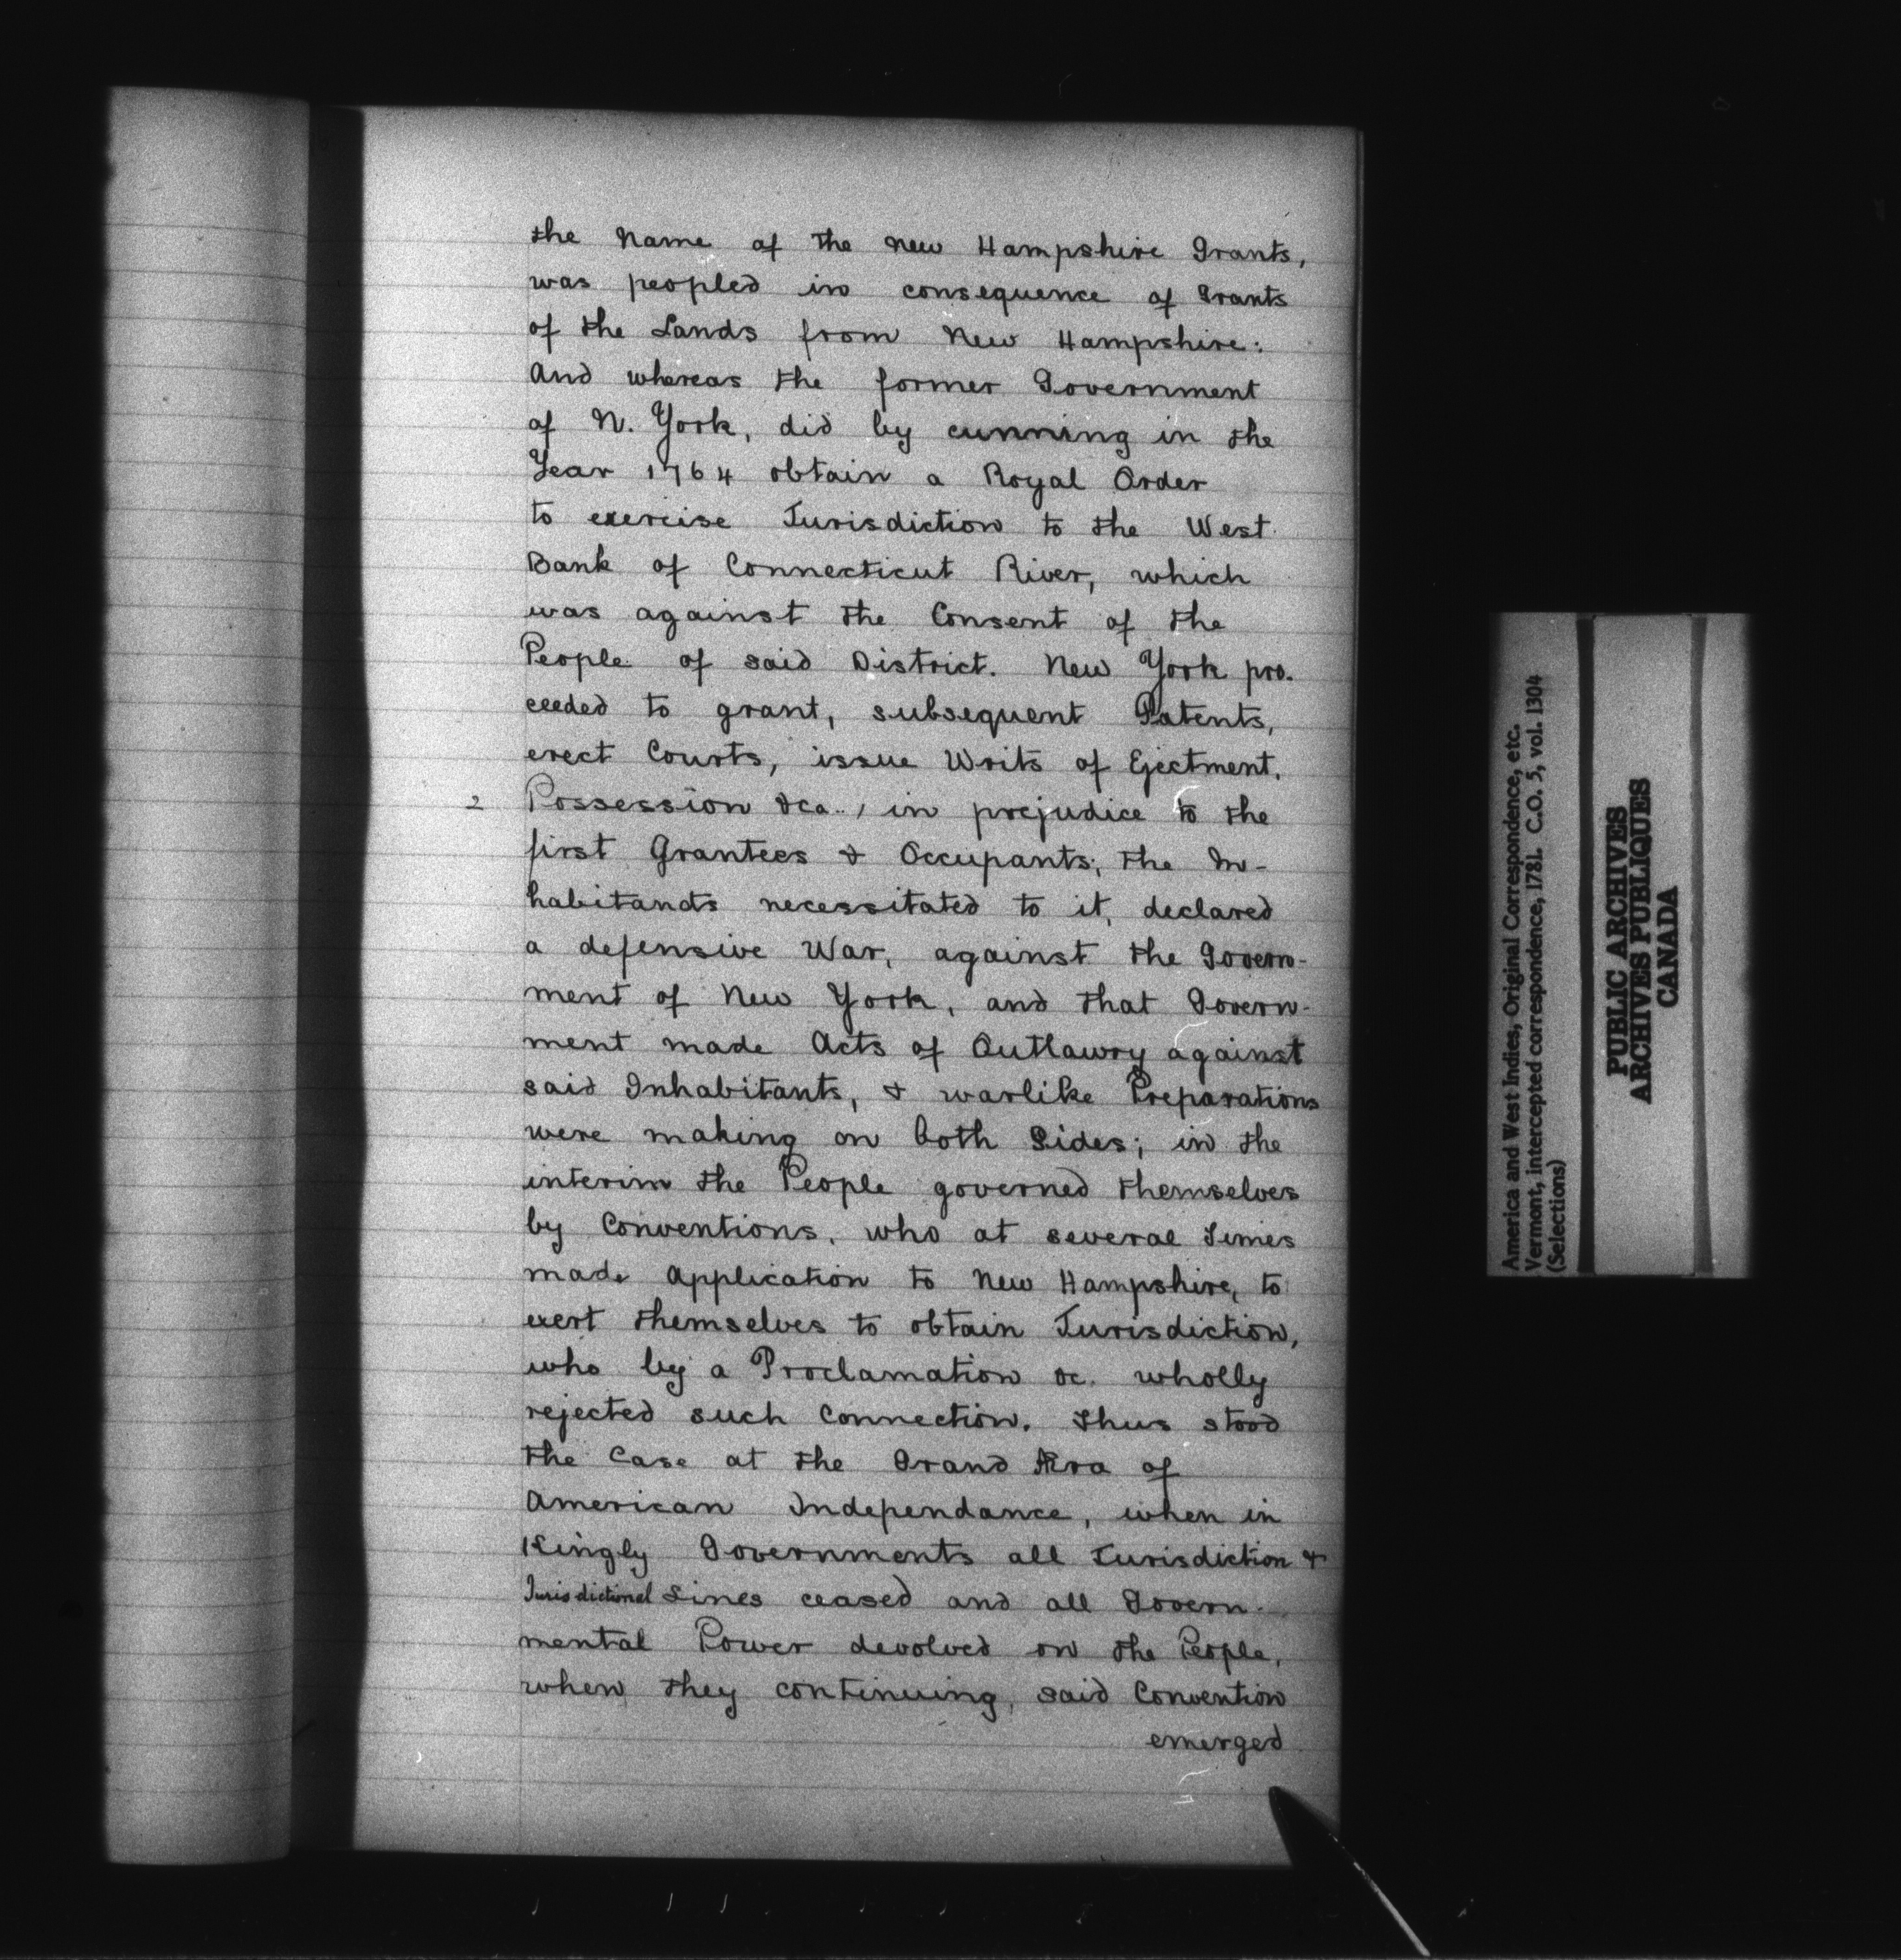 the Name of the New Hampshire Grants,
was peopled in consequence of Grants
of the Lands from New Hampshire:
And whereas the former Government
of N. York, did by cunning in the
Year 1764 obtain a Royal Order
to exercise Jurisdiction to the West
Bank of Connecticut River, which
was against the Consent of the
People of said District. New York pro-
ceeded to grant, subsequent Patents,
erect Courts, issue Writs of Ejectment.
2 Possession &ca., in prejudice to the
first Grantees & Occupants; the In-
habitants necessitated to it, declared
a defensive War, against the Govern-
ment of New York, and that Govern-
ment made Acts of Outlawry against
said Inhabitants, & warlike Preparations
were making on both Sides; in the
interim the People governed themselves
by Conventions, who at several Times
made Application to New Hampshire, to
exert themselves to obtain Jurisdiction,
who by a Proclamation &c. wholly
rejected such Connection. Thus stood
the Case at the Grand Æra of
American Independance, when in
Kingly Governments all Jurisdiction &
Jurisdictional Lines ceased and all Govern-
mental Power devolved on the People,
when they continuing, said Convention
emerged
America and West Indies, Original Correspondence, etc.
Vermont, intercepted correspondence, 1781. C.O. 5, vol. 1304
(Selections)
PUBLIC ARCHIVES
ARCHIVES PUBLIQUES
CANADA